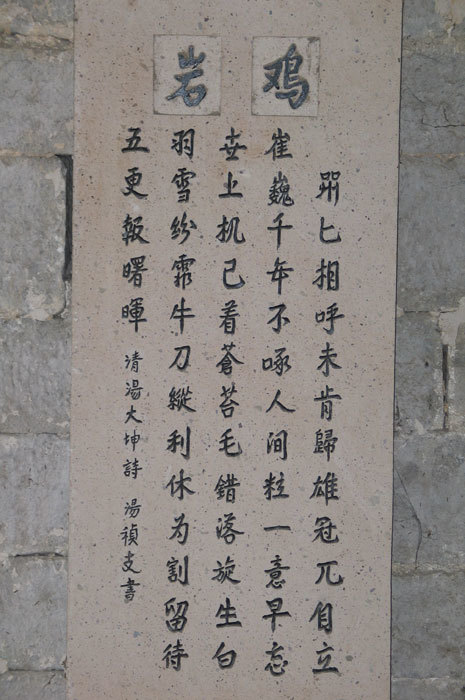 鸡岩
喌匕相呼未肯歸雄冠兀自立
崔巍千年不啄人间粒一意早忘
世上机已着蒼苔毛錯落旋生白
羽雪紛霏牛刀縱利休为割留待
五更報曙暉 清湯大坤詩 湯禎支書